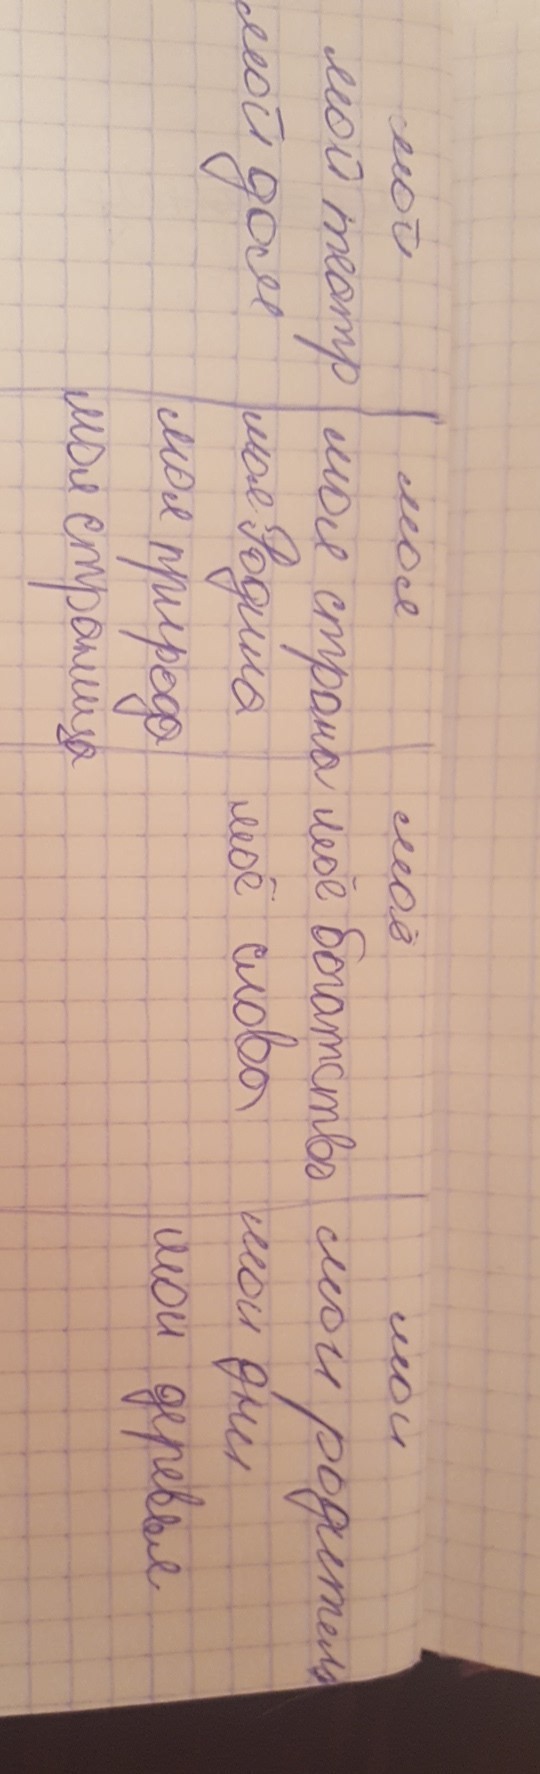 мой моя моё мои
мой театр моя страна моё богатство мои родители
мой дом моя Родина моё слово мои дни
моя природа мои деревья
моя страница